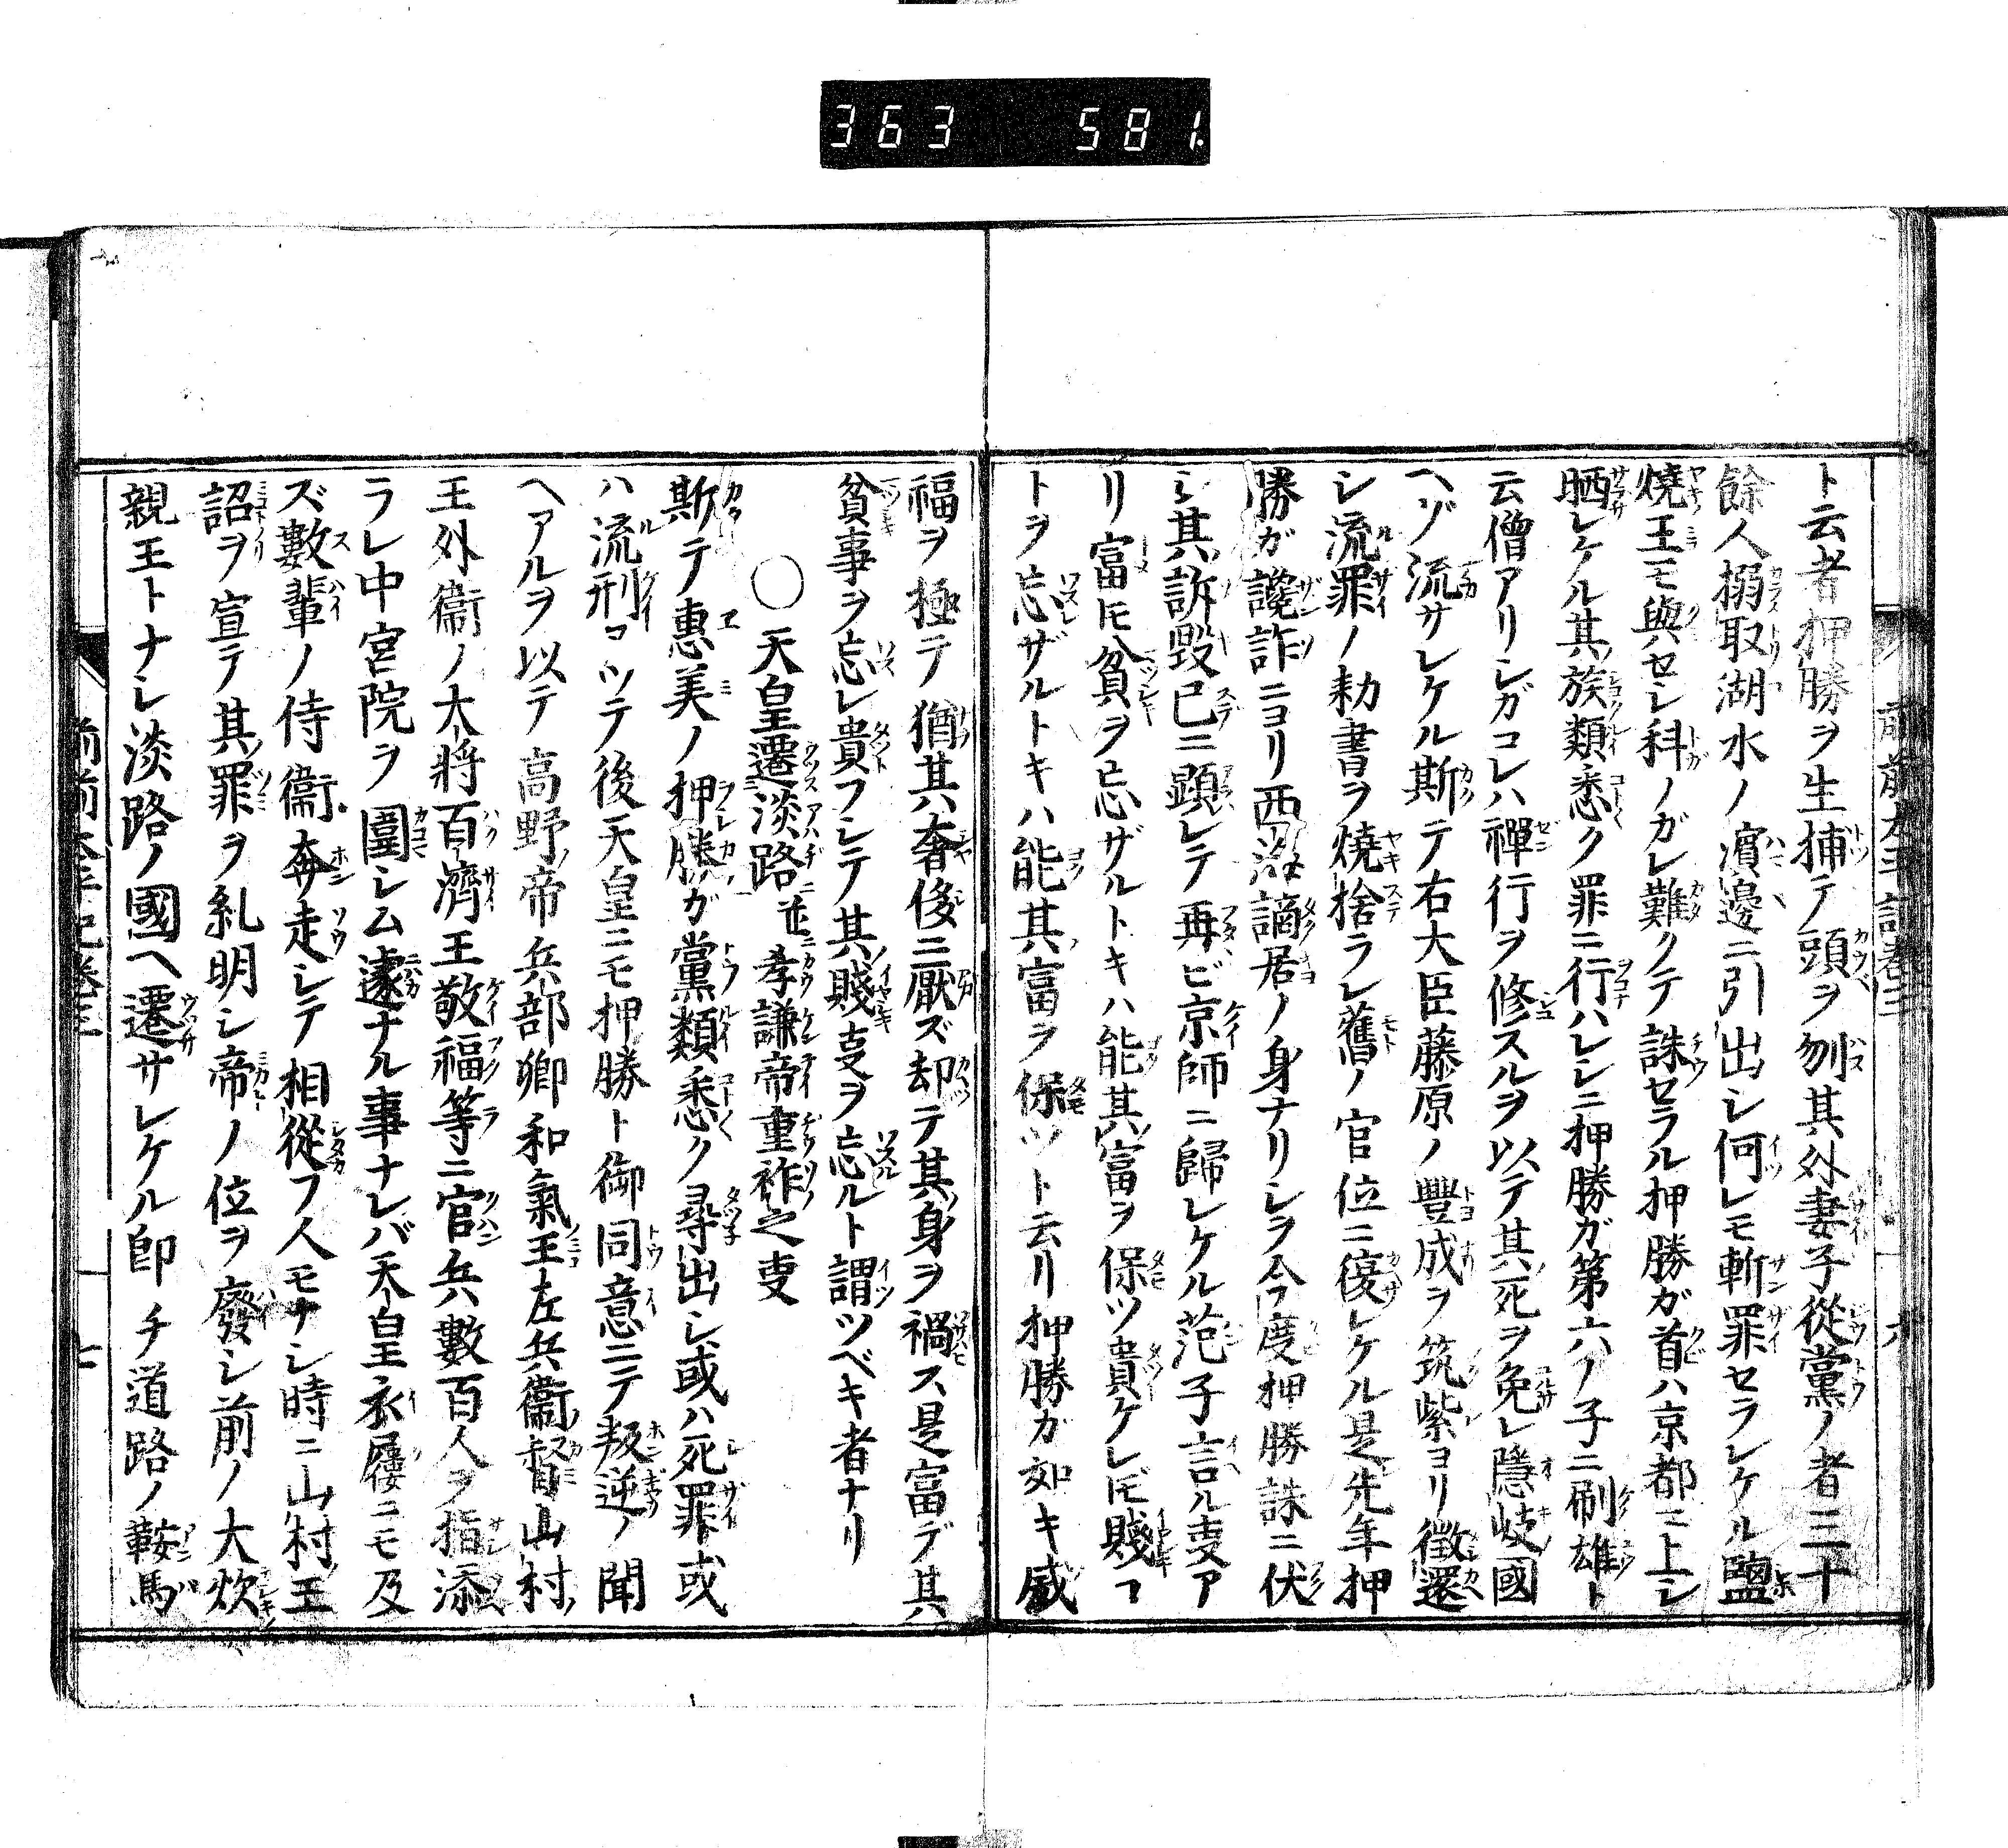 363 581.
前前太平記卷三 六
ト云者押勝ヲ生捕テ頭ヲ刎其外妻子從黨ノ者三十
餘人搦取湖水ノ濵邊ニ引出シ何レモ斬罪セラレケル鹽
燒王モ與セシ科ノガレ難クテ誅セラル押勝ガ首ハ京都ニ上シ
晒レケル其族類悉ク罪ニ行ハレシニ押勝ガ第六ノ子ニ刷雄ト
云僧アリシガコレハ禪行ヲ修スルヲ以テ其死ヲ免レ隱岐國
ヘゾ流サレケル斯テ右大臣藤原ノ豐成ヲ筑紫ヨリ徴還
シ流罪ノ勅書ヲ燒捨ラレ舊ノ官位ニ復レケル是先年押
勝ガ讒詐ニヨリ西海謫居ノ身ナリシヲ今度押勝誅ニ伏
シ其訴毀已ニ顕レテ再ビ京師ニ歸レケル范子言ル叓ア
リ富ドモ貧ヲ忘ザルトキハ能其富ヲ保ツ貴ケレドモ賤コ
トヲ忘ザルトキハ能其富ヲ保ツト云リ押勝ガ如キ威
福ヲ極テ猶其奢侈ニ厭ズ却テ其身ヲ禍ス是富デ其
貧事ヲ忘レ貴フシテ其賤叓ヲ忘ルト謂ツベキ者ナリ
○天皇遷淡路並ニ孝謙帝重祚之叓
斯テ惠美ノ押勝ガ黨類悉ク尋出シ或ハ死罪或
ハ流刑コツテ後天皇ニモ押勝ト御同意ニテ叛逆ノ聞
ヘアルヲ以テ高野帝兵部卿和氣王左兵衞督山村
王外衞ノ大將百濟王敬福等ニ官兵數百人ヲ指添
ラレ中宮院ヲ圍シム遽ナル事ナレバ天皇衣屨ニモ及
ズ數輩ノ侍衞奔走シテ相從フ人モナシ時ニ山村王
詔ヲ宣テ其罪ヲ糺明シ帝ノ位ヲ廢シ前ノ大炊
親王トナシ淡路ノ國ヘ遷サレケル卽チ道路ノ鞍馬
前前太平記卷三 七